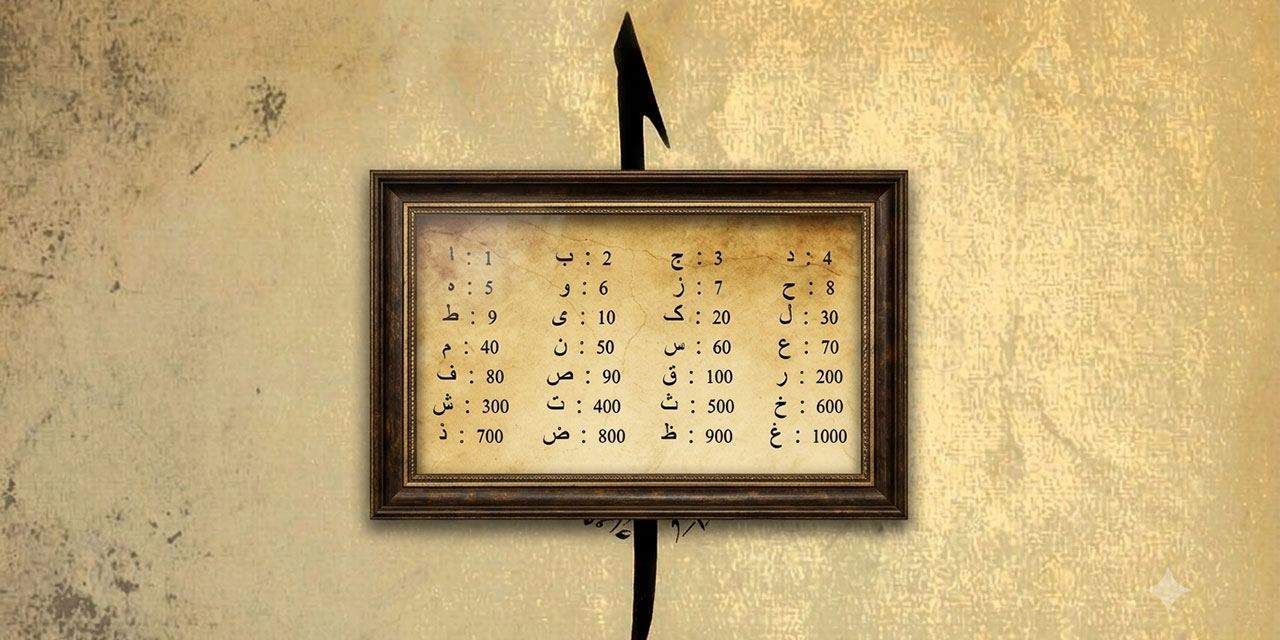 ا : 1 ب : 2 ج : 3 د : 4
ه : 5 و : 6 ز : 7 ح : 8
ط : 9 ی : 10 ک : 20 ل : 30
م : 40 ن : 50 س : 60 ع : 70
ف : 80 ص : 90 ق : 100 ر : 200
ش : 300 ت : 400 ث : 500 خ : 600
ذ : 700 ض : 800 ظ : 900 غ : 1000